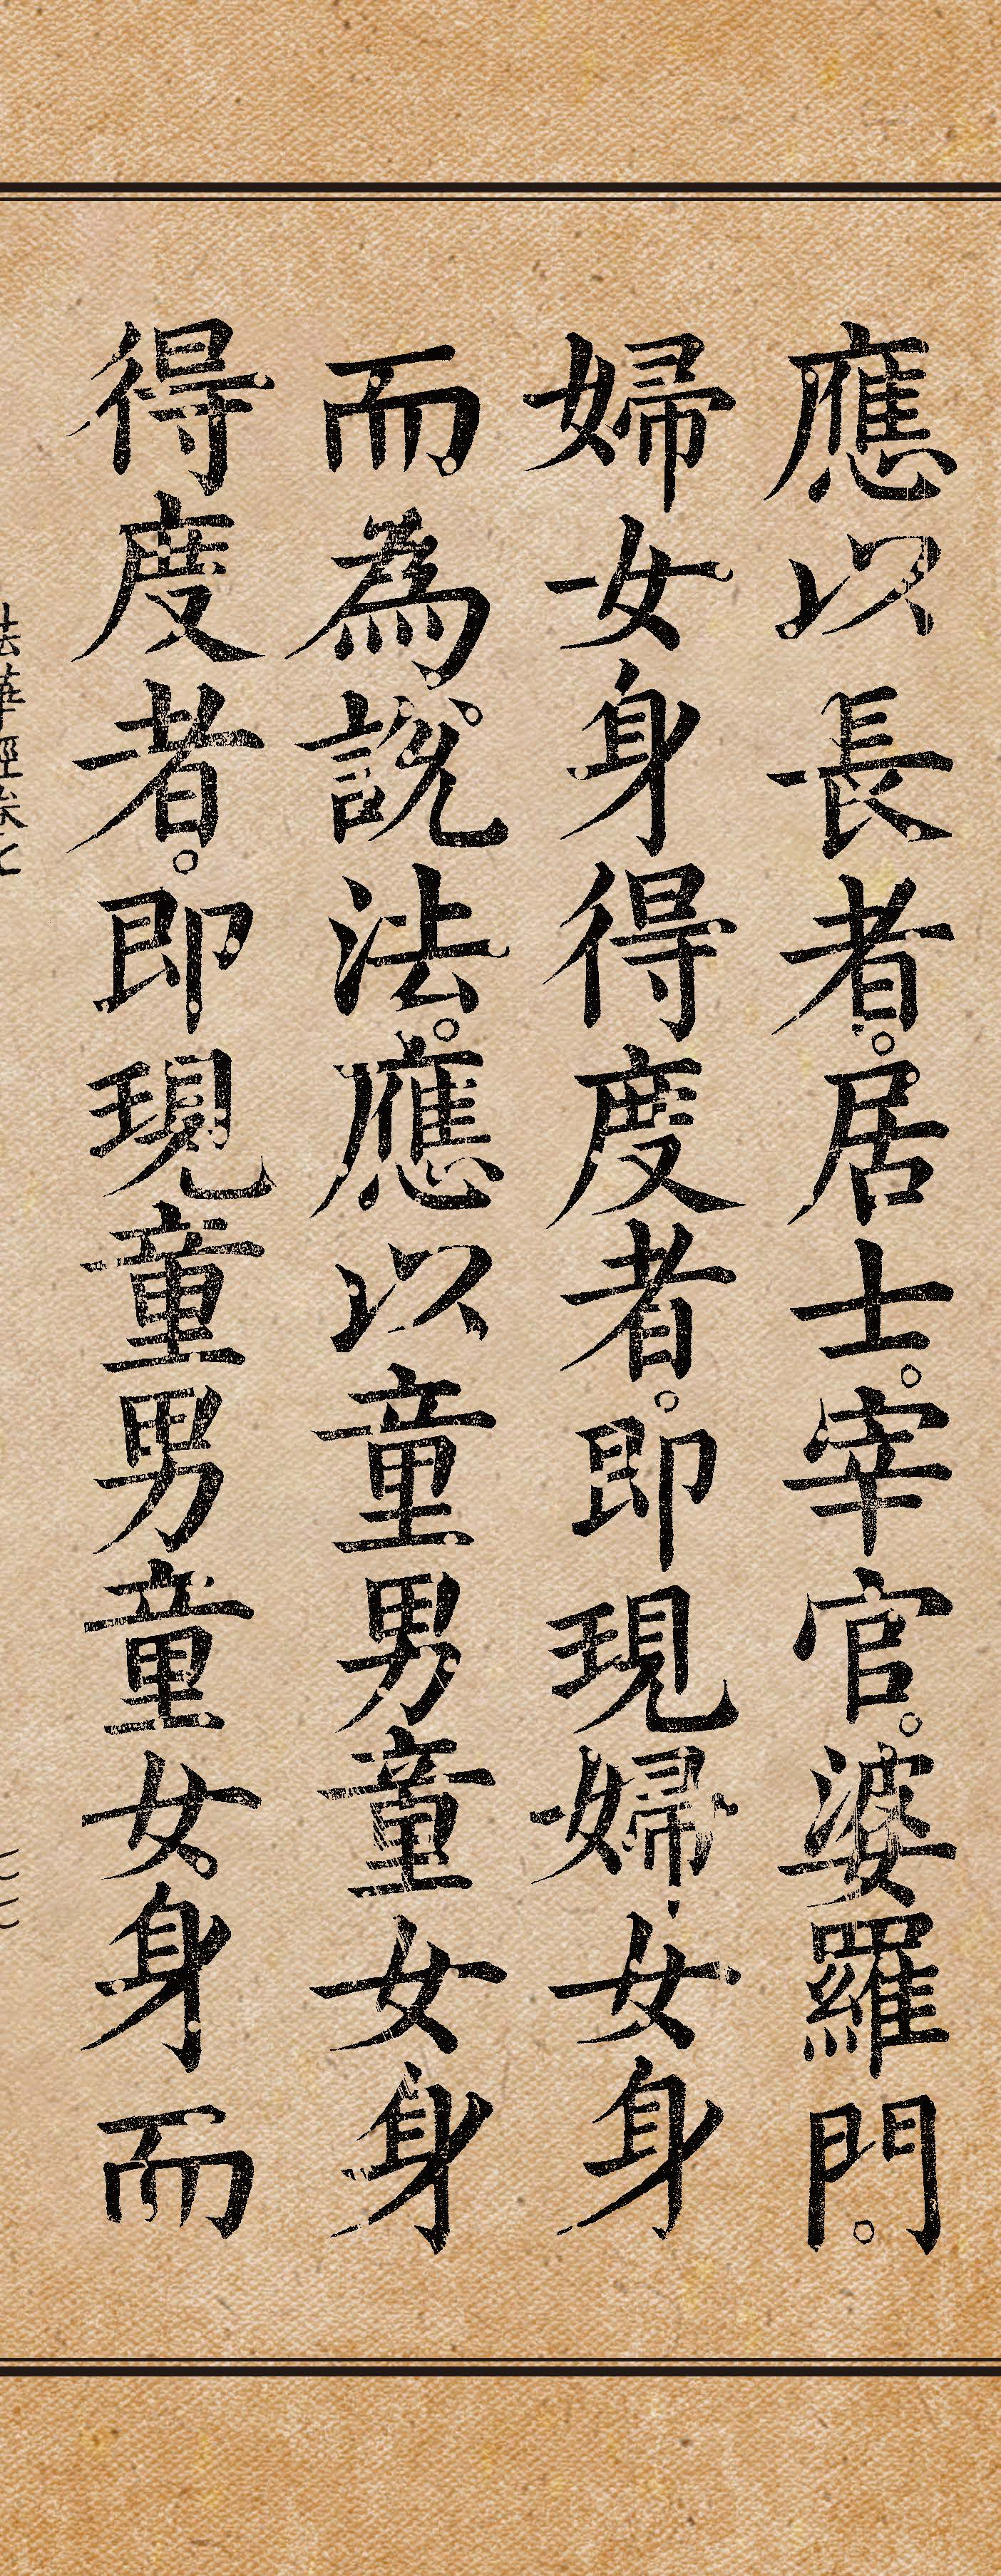 應以長者。居士。宰官。婆羅門。
婦女身得度者。即現婦女身
而為說法。應以童男童女身
得度者。即現童男童女身而
法華經卷七